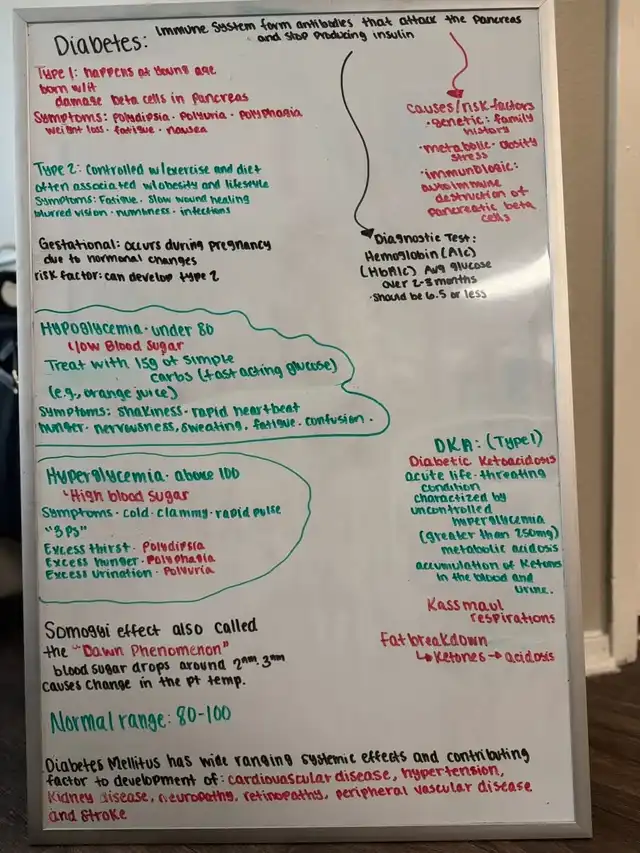 Diabetes: Immune System form antibodies that attack the Pancreas
and stop producing insulin
Type 1: happens at young age
born with
damage beta cells in pancreas
Symptoms: polydipsia · polyuria · polyphagia
weight loss · fatigue · nausea
Type 2: Controlled w/exercise and diet
often associated w/obesity and lifestyle
Symptoms: Fatigue · Slow wound healing
blurred vision · numbness · infections
Gestational: occurs during pregnancy
due to hormonal changes
risk factor: can develop type 2
Causes/risk-factors
· genetic: family
history
· metabolic · obsity
stress
· immunologic:
autoimmune
destruction of
pancreatic beta
cells
Diagnostic Test:
Hemoglobin (A1c)
(HbA1c) Avg glucose
over 2-3 months
· Should be 6.5 or less
Hypoglycemia · under 80
Low Blood Sugar
Treat with 15g of simple
carbs (fast acting glucose)
(e.g., orange juice)
Symptoms: shakiness · rapid heartbeat
hunger · nervousness, sweating, fatigue · confusion.
Hyperglycemia · above 100
High blood sugar
Symptoms · cold · clammy · rapid pulse
"3 Ps"
Excess thirst · Polydipsia
Excess hunger · Polyphagia
Excess urination · Polyuria
DKA: (Type 1)
Diabetic Ketoacidosis
acute life-threating
condition
charactized by
uncontrolled
hyperglycemia
(greater than 250mg)
metabolic acidosis
accumulation of Ketones
in the blood and
urine.
Kassmaul
respirations
Fat breakdown
↳ Ketones → acidosis
Somogyi effect also called
the "Dawn Phenomenon"
blood sugar drops around 2nm-3nm
causes change in the pt temp.
Normal range: 80-100
Diabetes Mellitus has wide ranging systemic effects and contributing
factor to development of: cardiovascular disease, hypertension,
Kidney disease, neuropathy, retinopathy, peripheral vascular disease
and stroke